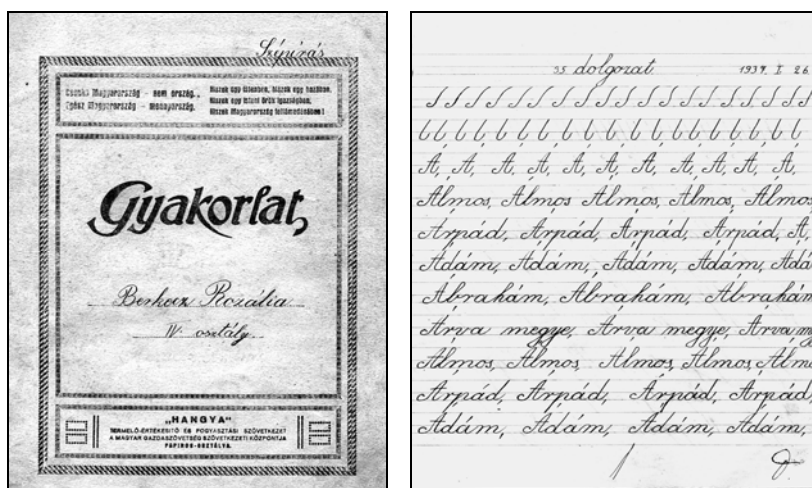 Szépírás
Csonka Magyarország - nem ország,
Egész Magyarország - mennyország.
Hiszek egy Istenben, hiszek egy hazában,
Hiszek egy isteni örök igazságban,
Hiszek Magyarország feltámadásában!
Gyakorlat,
Rozália
IV. osztály.
„HANGYA”
TERMELŐ-ÉRTÉKESITŐ ÉS FOGYASZTÁSI SZÖVETKEZET
A MAGYAR GAZDASZÖVETSÉG SZÖVETKEZETI KÖZPONTJA
PAPIROS-OSZTÁLYA.
35 dolgozat. 1937. I. 26
Á, Á, Á, Á, Á, Á, Á, Á, Á, Á, Á,
Álmos, Álmos Álmos, Álmos, Álmos
Árpád, Árpád, Árpád, Árpád, Á,
Ádám, Ádám, Ádám, Ádám, Ádá
Ábrahám, Ábrahám, Ábrahám
Árva megye, Árva megye, Árva m
Álmos, Álmos, Álmos, Álmos, Álmo
Árpád, Árpád, Árpád, Árpád,
Ádám, Ádám, Ádám, Ádám,